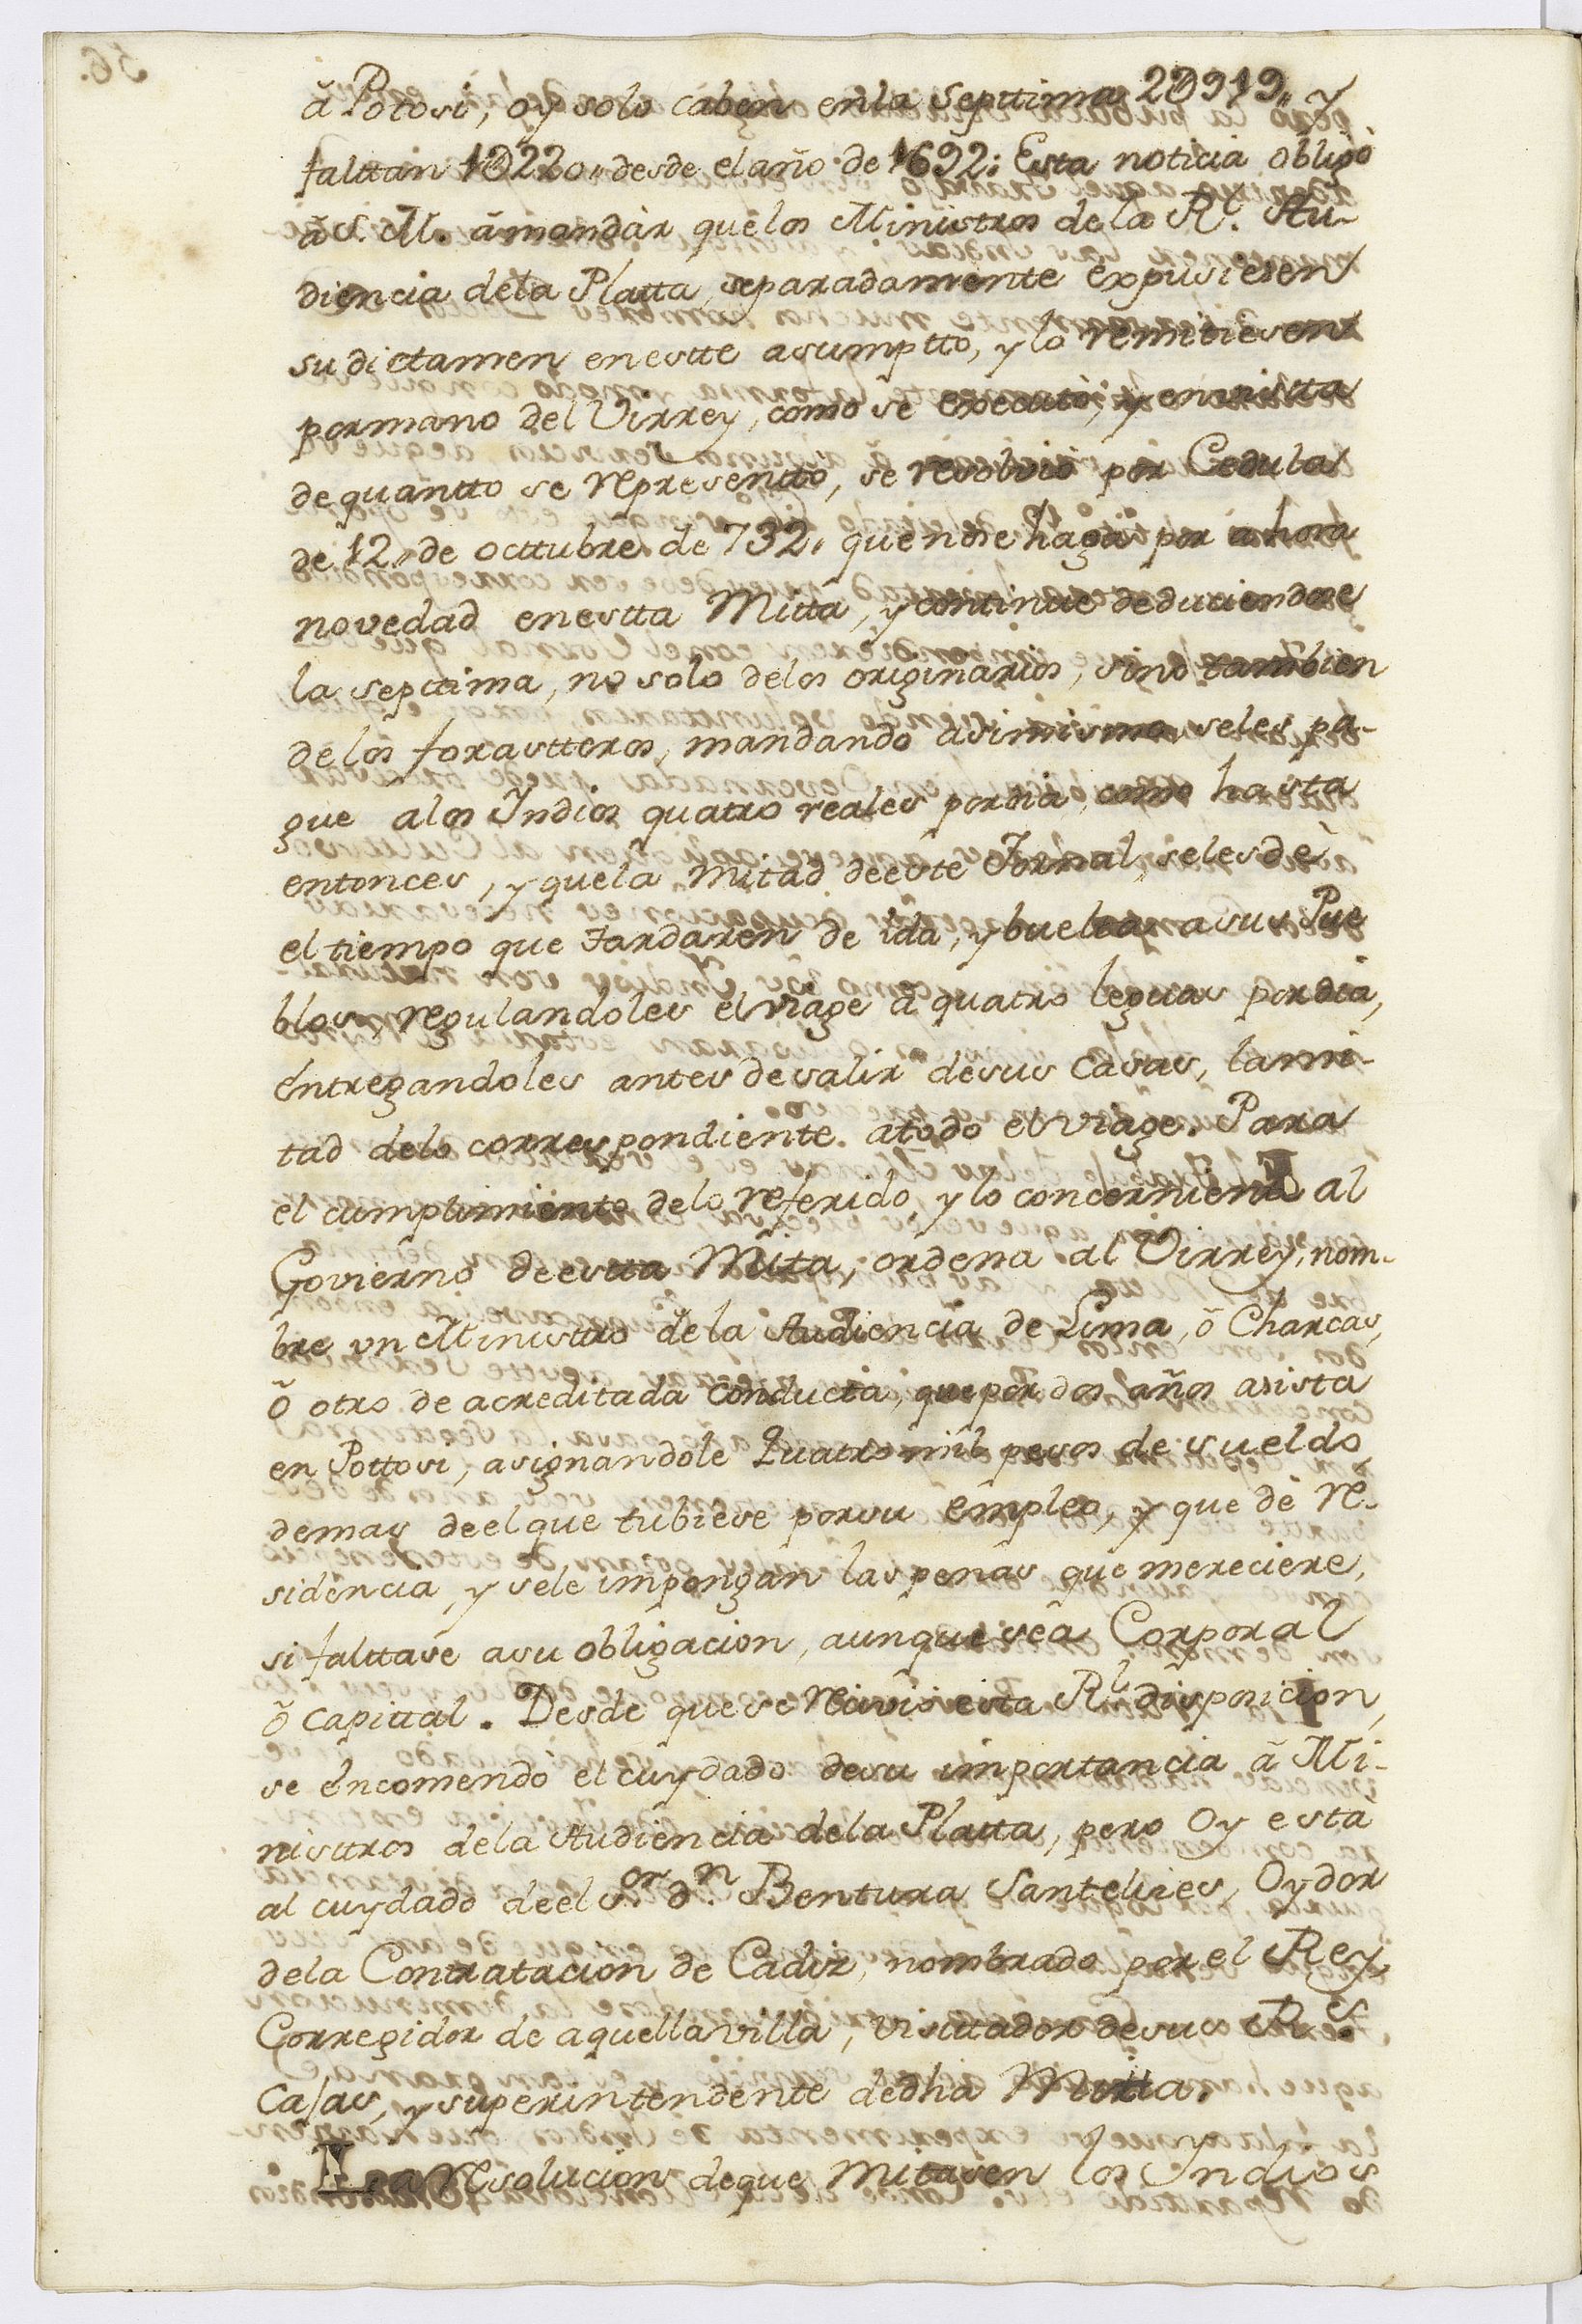 â Potosi, oy solo caben en la Septtima 2@919,, y
falttan 1@220,, desde el año de 1692: Esta noticia obligò
â S. M. â mandàr que los Ministros de la Rl. Au-
diencia dela Platta, separadamente expusiesen
su dictamen en estte asumptto, y lo remitiesen
por mano del Virrey, como se executò, y en vistta
de quantto se representtò, se resolviò por Cedula
de 12,, de octtubre de 732,, que no se haga por ahora
novedad en estta Mitta, y continue deduciendose
la septtima, no solo delos originarios, sino tambien
delos forastteros, mandando asi mismo seles pa-
gue alos Yndios quatro reales por dia, como hasta
entonces, y que la mitad de este Jornal, seles dè
el tiempo que tardaren de ida, y buelta a sus Pue
blos, regulandoles el viage â quatro leguas por dia,
entregandoles antes de salir desus casas, la mi-
tad delo correspondiente atodo el viage. Para
el cumplimiento delo referido, y lo concerniente al
Govierno de estta Mita, ordena al Virrey, nom-
bre un Ministtro dela Audiencia de Lima, ô Charcas,
ô otro de acreditada conducta, que por dos años asista
en Pottosi, asignandole Quatro mil pesos de sueldo
demas de el que tubiese por su empleo, y que dè re-
sidencia, y sele impongan las penas que mereciere,
si falttase asu obligacion, aunque sea Corporal
ô capittal. Desde que se reciviò esta Rl. disposicion,
se encomendo el cuydado desu importancia â Mi-
nisttros dela Audiencia dela Platta, pero Oy esta
al cuydado de el Sor. dn. Bentura Santelices, Oydor
dela Contratacion de Cadiz, nombrado por el Rey,
Corregidor de aquella villa, visitador desus Rs.
Cajas, y superintendente dedha Mitta.
La resolucion deque mitasen los Yndios